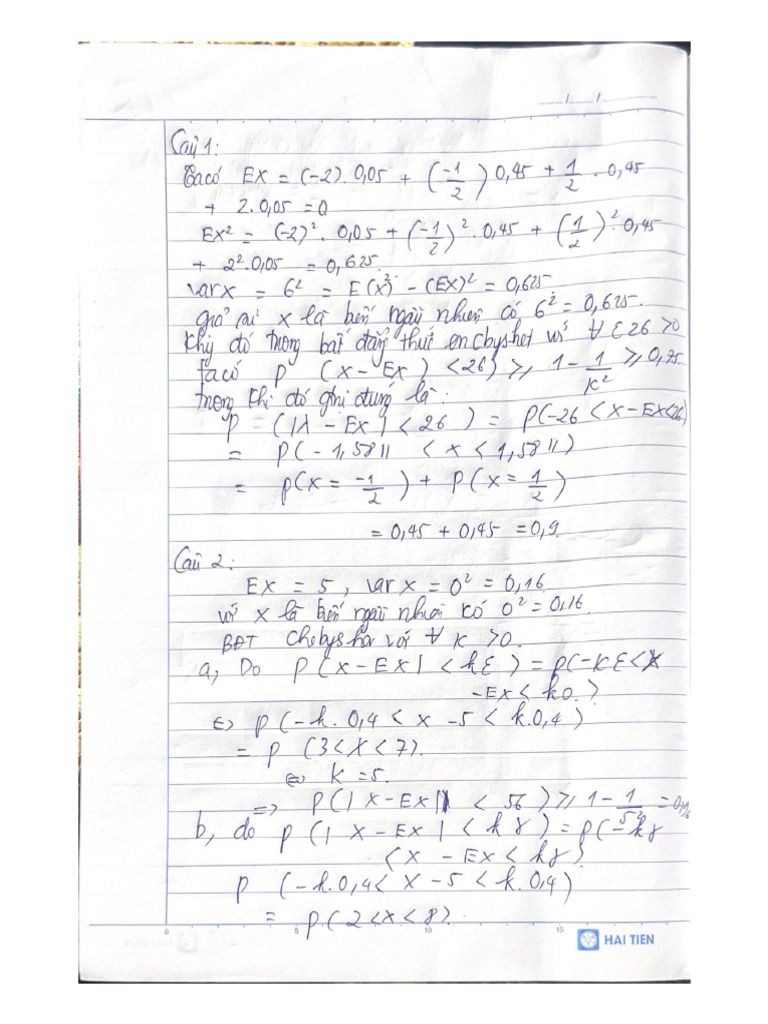 Câu 1:
Ta có EX = (-2). 0,05 + (-1/2) 0,45 + 1/2 . 0,45
+ 2.0,05 = 0
EX² = (-2)². 0,05 + (-1/2)². 0,45 + (1/2)². 0,45
+ 2².0,05 = 0,625.
var X = 6² = E(X²) - (EX)² = 0,625.
giả sử X là biến ngẫu nhiên có 6² = 0,625.
khi đó trong bất đẳng thức với ∀ ε26 >0
Ta có P (X - EX) <26) ≥ 1 - 1/K² ≥ 0,75
trong khi đó là:
P (|X - EX| < 26) = P(-26 < X - EX<26)
= P(-1,5811 < X < 1,5811)
= P(X = -1/2) + P(X = 1/2)
= 0,45 + 0,45 = 0,9.
Câu 2:
EX = 5, var X = σ² = 0,16.
với X là biến ngẫu nhiên có σ² = 0,16.
BĐT với ∀ K >0.
a, Do P(X - EX| < kε) = P(-Kε < X
-EX < kσ.)
⇔ P(-k. 0,4 < X -5 < k.0,4)
= P (3 < X < 7).
⇔ K = 5.
=> P(|X - EX| < 56) ≥ 1 - 1/5² = 0,96
b, do P(|X - EX| < kγ) = P(-kγ
< X - EX < kγ)
P (-k.0,4 < X - 5 < k. 0,4)
= P(2 < X < 8).
0 5 10 15
HAI TIEN